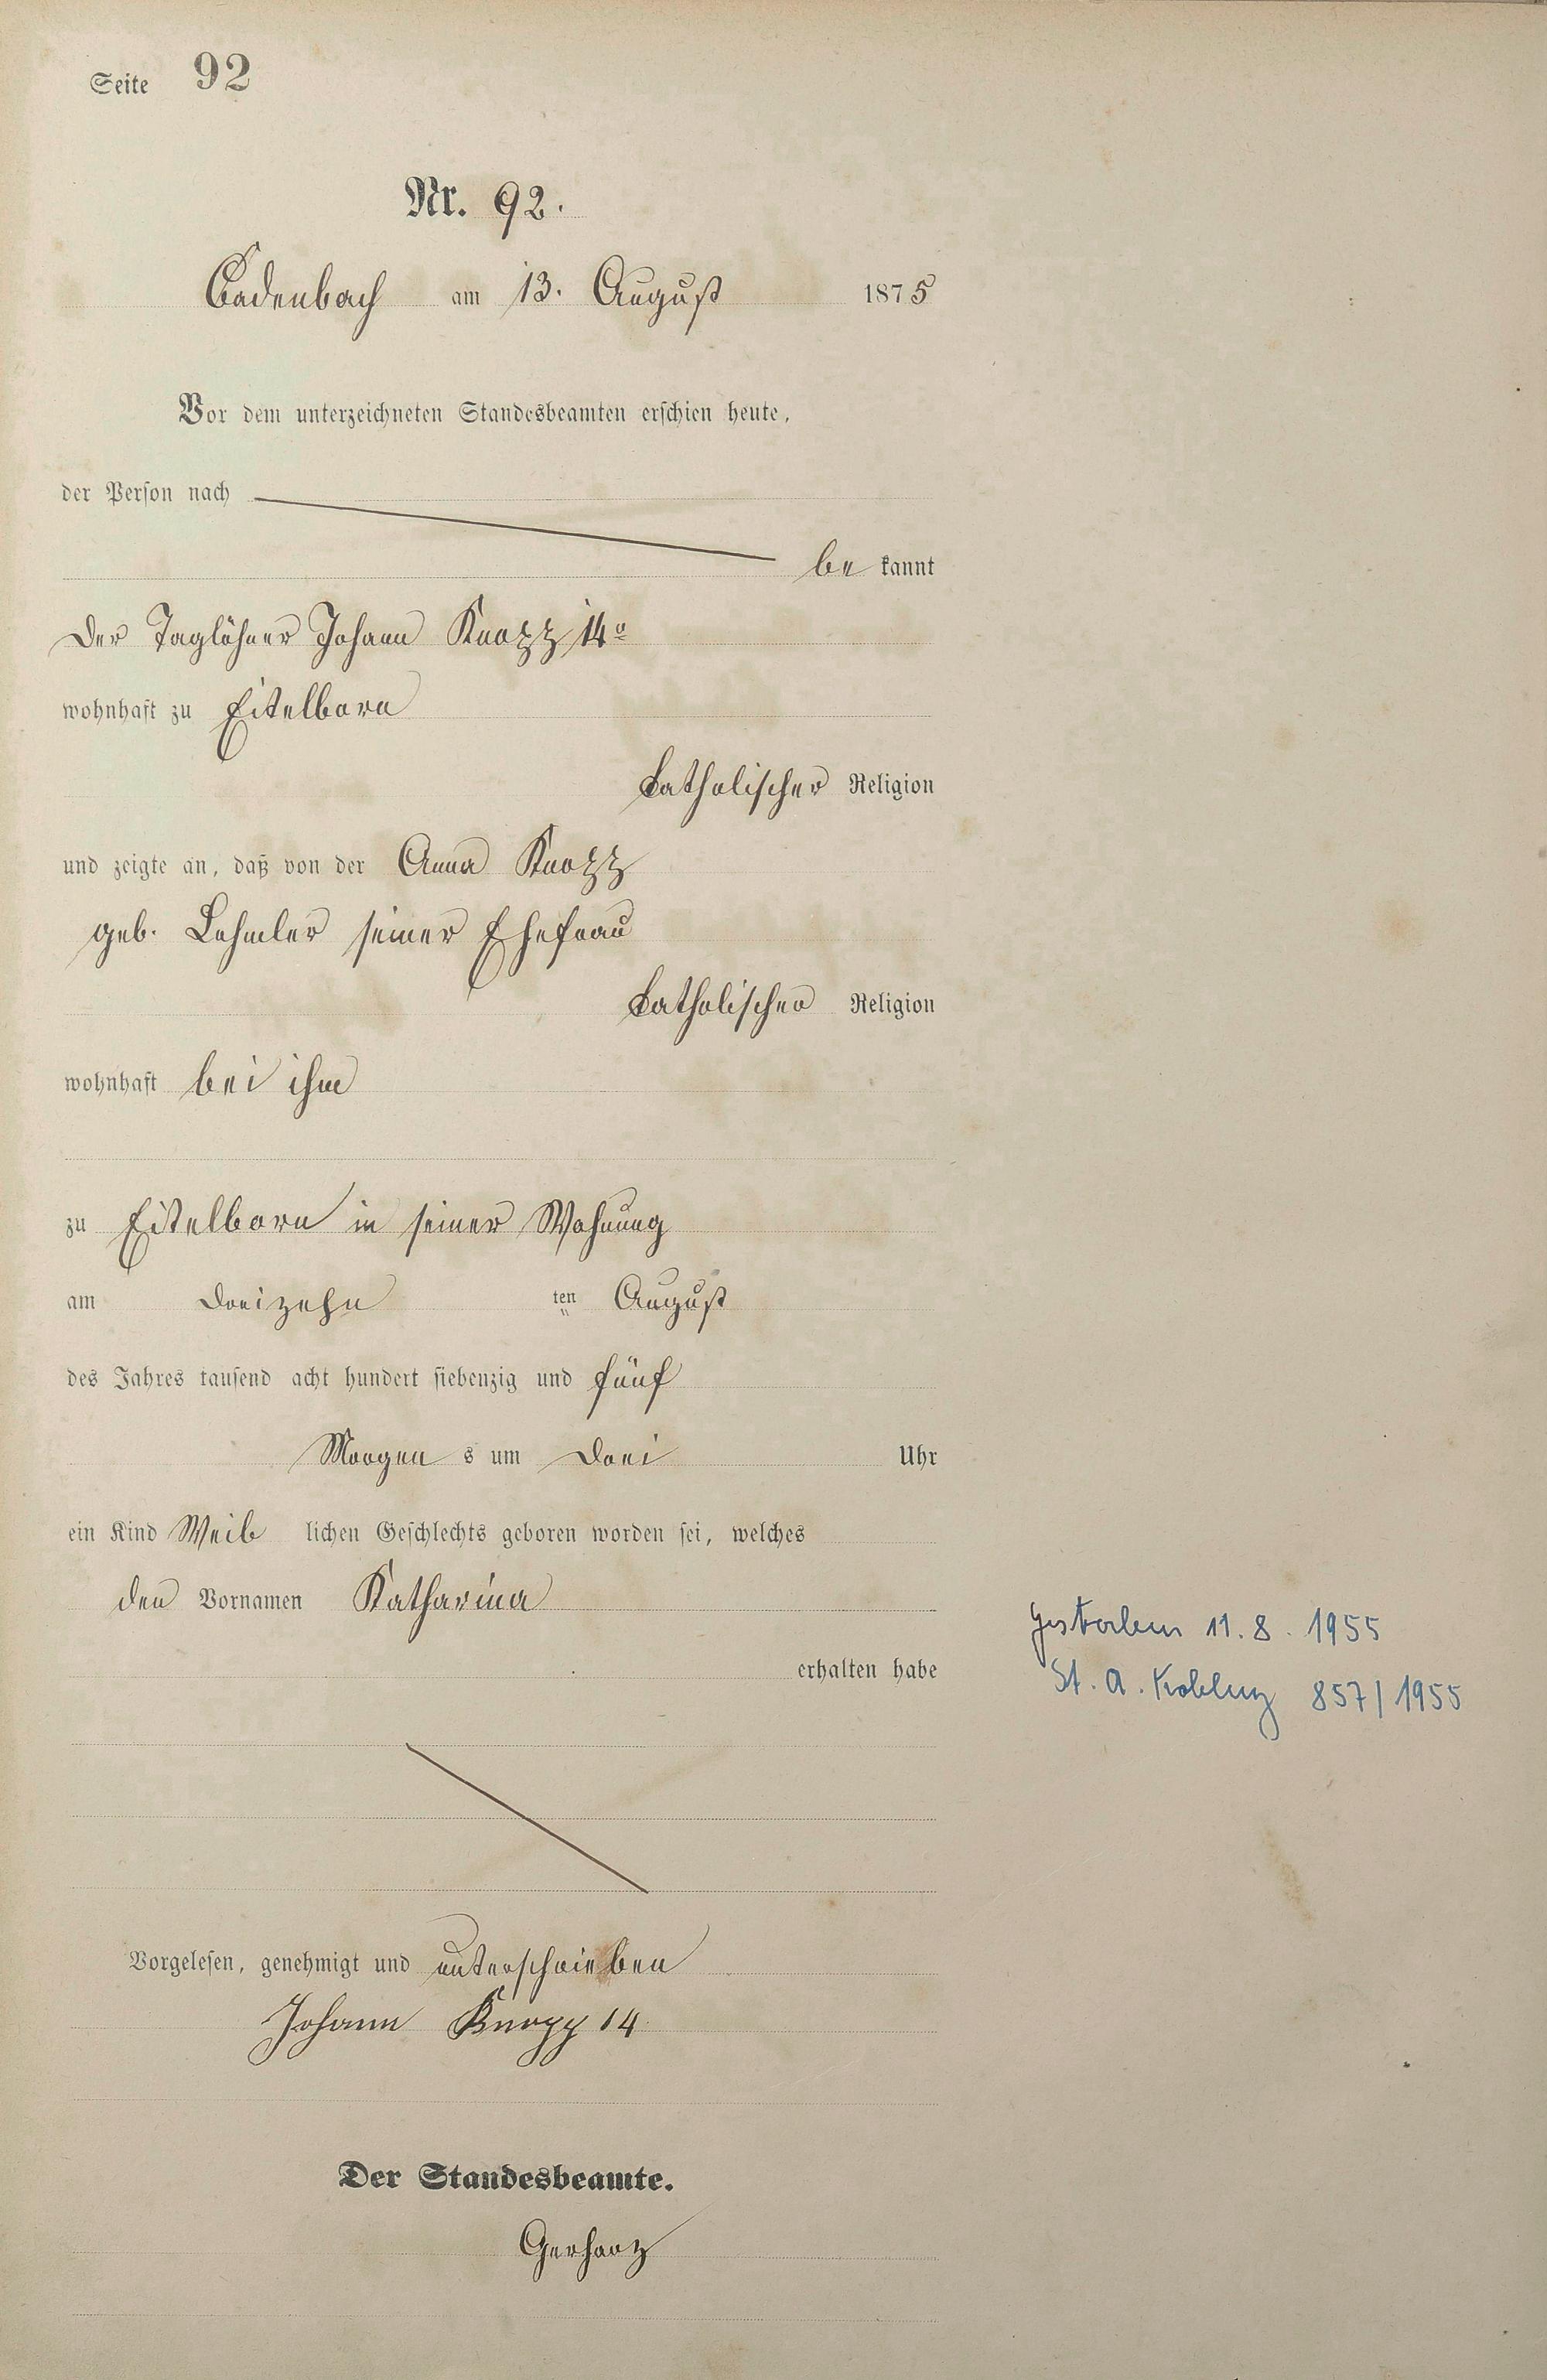 Seite 92
Nr. 92.
Cadenbach am 13. August 1875
Vor dem unterzeichneten Standesbeamten erschien heute,
der Person nach
be kannt
der Taglöhner Johann Knopp 14r
wohnhaft zu Eitelborn
katholischer Religion
und zeigte an, daß von der Anna Knopp
geb. Lehmler seiner Ehefrau
katholischer Religion
wohnhaft bei ihm
zu Eitelborn in seiner Wohnung
am dreizehn ten August
des Jahres tausend acht hundert siebenzig und fünf
Morgen s um drei Uhr
ein Kind Weib lichen Geschlechts geboren worden sei, welches
den Vornamen Katharina
erhalten habe
Gestorben 11.8.1955
St. A. Koblenz 857/1955
Vorgelesen, genehmigt und unterschrieben
Johann Knopp 14
Der Standesbeamte.
Gerharz